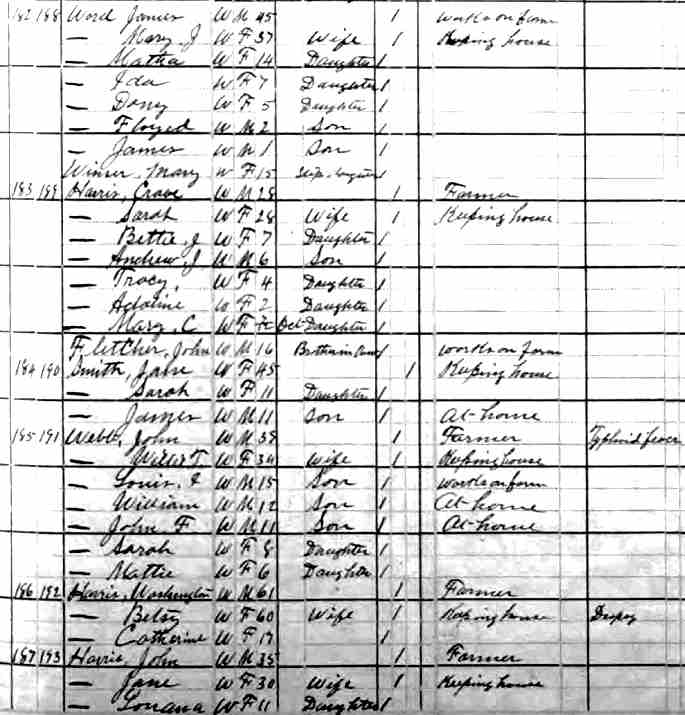 182 188 Word James W M 45 1 works on farm
— Mary J W F 37 Wife 1 Keeping house
— Matha W F 14 Daughter 1
— Ida W F 7 Daughter 1
— Dony W F 5 Daughter 1
— Floyed W M 2 Son 1
— James W M 1 Son 1
Mary W F 15 1
183 189 Harris, Crave W M 28 1 Farmer
— Sarah W F 28 Wife 1 Keeping house
— Bettie J W F 7 Daughter 1
— Andrew J W M 6 Son 1
— Tracy, W F 4 Daughter 1
— Adaline W F 2 Daughter 1
— Mary C W F Oct Daughter 1
Fletcher, John W M 16 Brother in law 1 works on farm
184 190 Smith, Jane W F 45 1 Keeping house
— Sarah W F 11 Daughter 1
— James W M 11 Son 1 At home
185 191 Webb, John W M 39 1 Farmer Typhoid fever
— W F 34 Wife 1 Keeping house
— Louis, W M 15 Son 1 works on farm
— William W M 12 Son 1 At home
— John F W M 11 Son 1 At home
— Sarah W F 8 Daughter 1
— Mattie W F 6 Daughter 1
186 192 Harris, Washington W M 61 1 Farmer
— Betsy W F 60 Wife 1 Keeping house Dropsy
— Catherine W F 17 1
187 193 Harris John W M 35 1 Farmer
— Jane W F 30 Wife 1 Keeping house
— Louana W F 11 Daughter 1